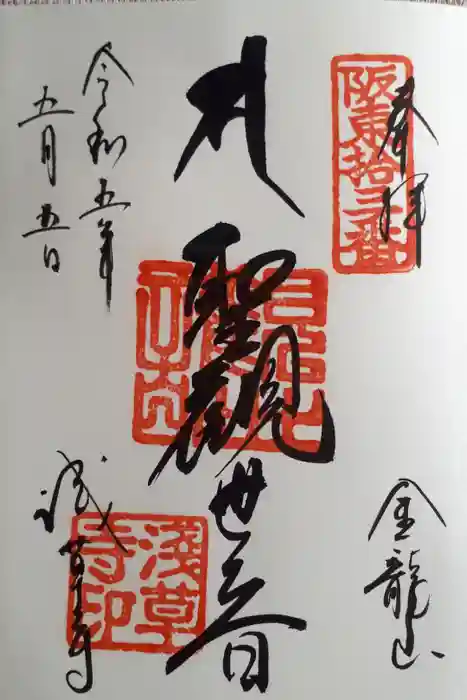 奉拝
阪東拾三番
金龍山
聖観世音
令和五年
五月五日
浅草寺
淺草
寺印